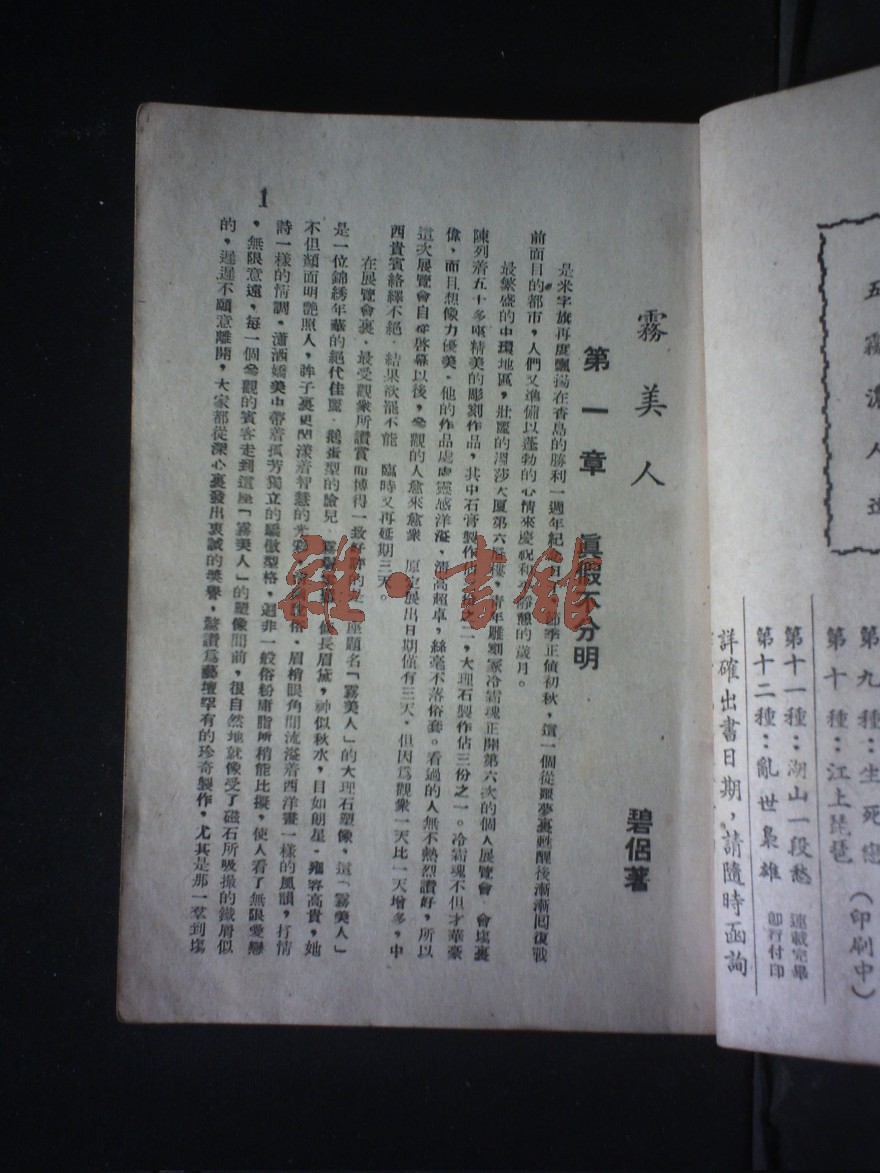 五霧濃人
第九種：生死戀（印刷中）
第十種：江上琵琶
第十一種：湖山一段愁 連載完畢
第十二種：亂世梟雄 即行付印
詳確出書日期，請隨時函詢
霧美人
碧侶著
第一章 眞假不分明
是米字旗再度飄揚在香島的勝利一週年紀念日，節季正値初秋，這一個從噩夢裏甦醒後漸漸囘復戰
前面目的都市，人們又準備以蓬勃的心情來慶祝和平靜憩的歲月。
最繁盛的中環地區，壯麗的大厦第六層樓，靑年雕刻家冷霜魂正開第六次的個人展覽會，會塲裏
陳列着五十多座精美的彫刻作品，其中石膏製作佔三份之二，大理石製作佔三份之一。冷霜魂不但才華豪
偉，而且想像力優美，他的作品處處靈感洋溢，淸高超卓，絲毫不落俗套。看過的人無不熱烈讃好，所以
這次展覽會自從啓幕以後，參觀的人愈來愈衆，原定展出日期僅有三天，但因爲觀衆一天比一天增多，中
西貴賓絡繹不絕，結果欲罷不能，臨時又再延期三天。
在展覽會裏，最受觀衆所讃賞而博得一致好評的是一座題名「霧美人」的大理石塑像，這「霧美人」
是一位錦綉年華的絕代佳麗，鵝蛋型的臉兒，霧鬢長眉黛，神似秋水，目如朗星，雍容高貴，她
不但顏面明艷照人，眸子裏更閃漾着智慧的光彩，眉梢眼角間流溢着西洋畫一樣的風韻，抒情
詩一樣的情調，瀟洒嬌美中帶着孤芳獨立的驕傲型格，逈非一般俗粉庸脂所稍能比擬，使人看了無限愛戀
，無限意遠，每一個參觀的賓客走到這座「霧美人」的塑像間前，很自然地就像受了磁石所吸撮的鐵屑似
的，遲遲不願意離開，大家都從深心裏發出衷誠的獎譽，驚讃爲藝壇罕有的珍奇製作，尤其是那一羣到塲
1
雜·書館